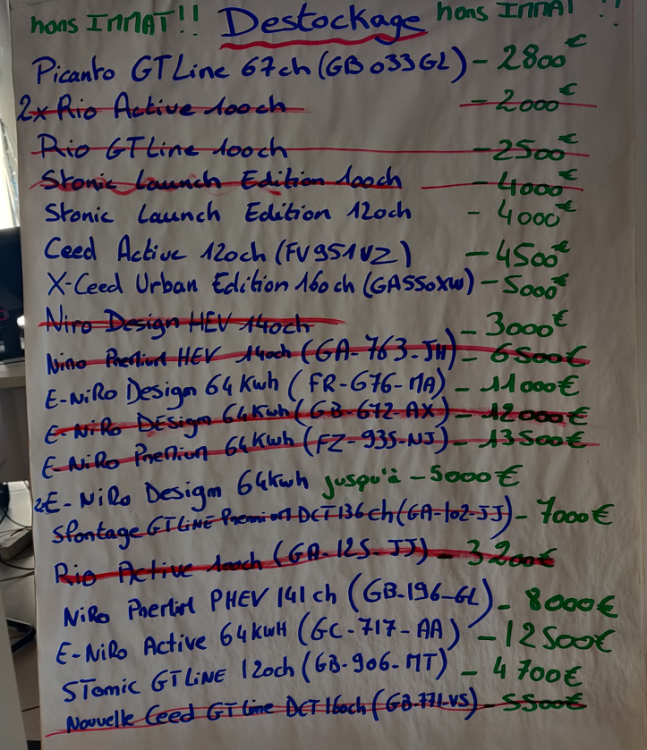 hors IMMAT!! Destockage hors IMMAT !!
Picanto GTLine 67ch (GB 033 GL) - 2800€
2x Rio Active 100ch - 2000€
Rio GTLine 100ch - 2500€
Stonic Launch Edition 100ch - 4000€
Stonic Launch Edition 120ch - 4000€
Ceed Active 120ch (FV951VZ) - 4500€
X-Ceed Urban Edition 160ch (GA550XW) - 5000€
Niro Design HEV 140ch - 3000€
Niro Premium HEV 140ch (GA-763-JH) - 6500€
E-NiRo Design 64Kwh (FR-676-MA) - 11000€
E-NiRo DEsign 64Kwh (GB-672-AX) - 12000€
E-NiRo Premium 64Kwh (FZ-935-NJ) - 13500€
2E-NiRo Design 64Kwh jusqu'à -5000€
Sportage GTLINE Premium DCT 136ch (GA-102-JJ) - 7000€
Rio Active 100ch (GA-125-JJ) - 3200€
NiRo PHEV 141ch (GB-196-GL) - 8000€
E-NiRo Active 64KwH (GC-717-AA) - 12500€
STonic GTLiNE 120ch (GB-906-MT) - 4700€
Nouvelle Ceed GTLine DCT 160ch (GB-771-VS) - 5500€